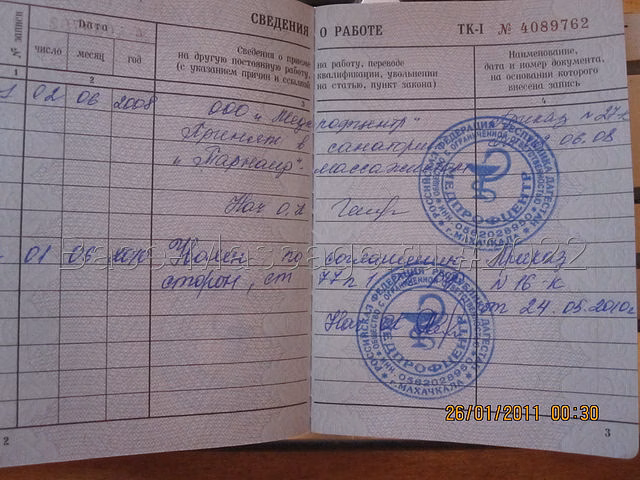 СВЕДЕНИЯ О РАБОТЕ
ТК-I № 4089762
№ записи
Дата
число
месяц
год
Сведения о приеме
на другую постоянную работу,
(с указанием причин и ссылкой
на работу, переводе
квалификации, увольнении
на статью, пункт закона)
Наименование,
дата и номер документа,
на основании которого
внесена запись
1 2 3 4
02 06 2008
ООО "Медпрофцентр" Приказ N 27
Принят в санаторий 06.08
"Тарнаир". массажистом
Нач о.к
01 06 2010
Уволен по соглашению Приказ
сторон, ст 77 п 1 N 16-к
от 24.05.2010г
Нач ок
РОССИЙСКАЯ ФЕДЕРАЦИЯ РЕСПУБЛИКА ДАГЕСТАН
ОБЩЕСТВО С ОГРАНИЧЕННОЙ ОТВЕТСТВЕННОСТЬЮ
МЕДПРОФЦЕНТР
Г.МАХАЧКАЛА
РОССИЙСКАЯ ФЕДЕРАЦИЯ РЕСПУБЛИКА ДАГЕСТАН
ОБЩЕСТВО С ОГРАНИЧЕННОЙ ОТВЕТСТВЕННОСТЬЮ
МЕДПРОФЦЕНТР
Г.МАХАЧКАЛА
26/01/2011 00:30
2
3